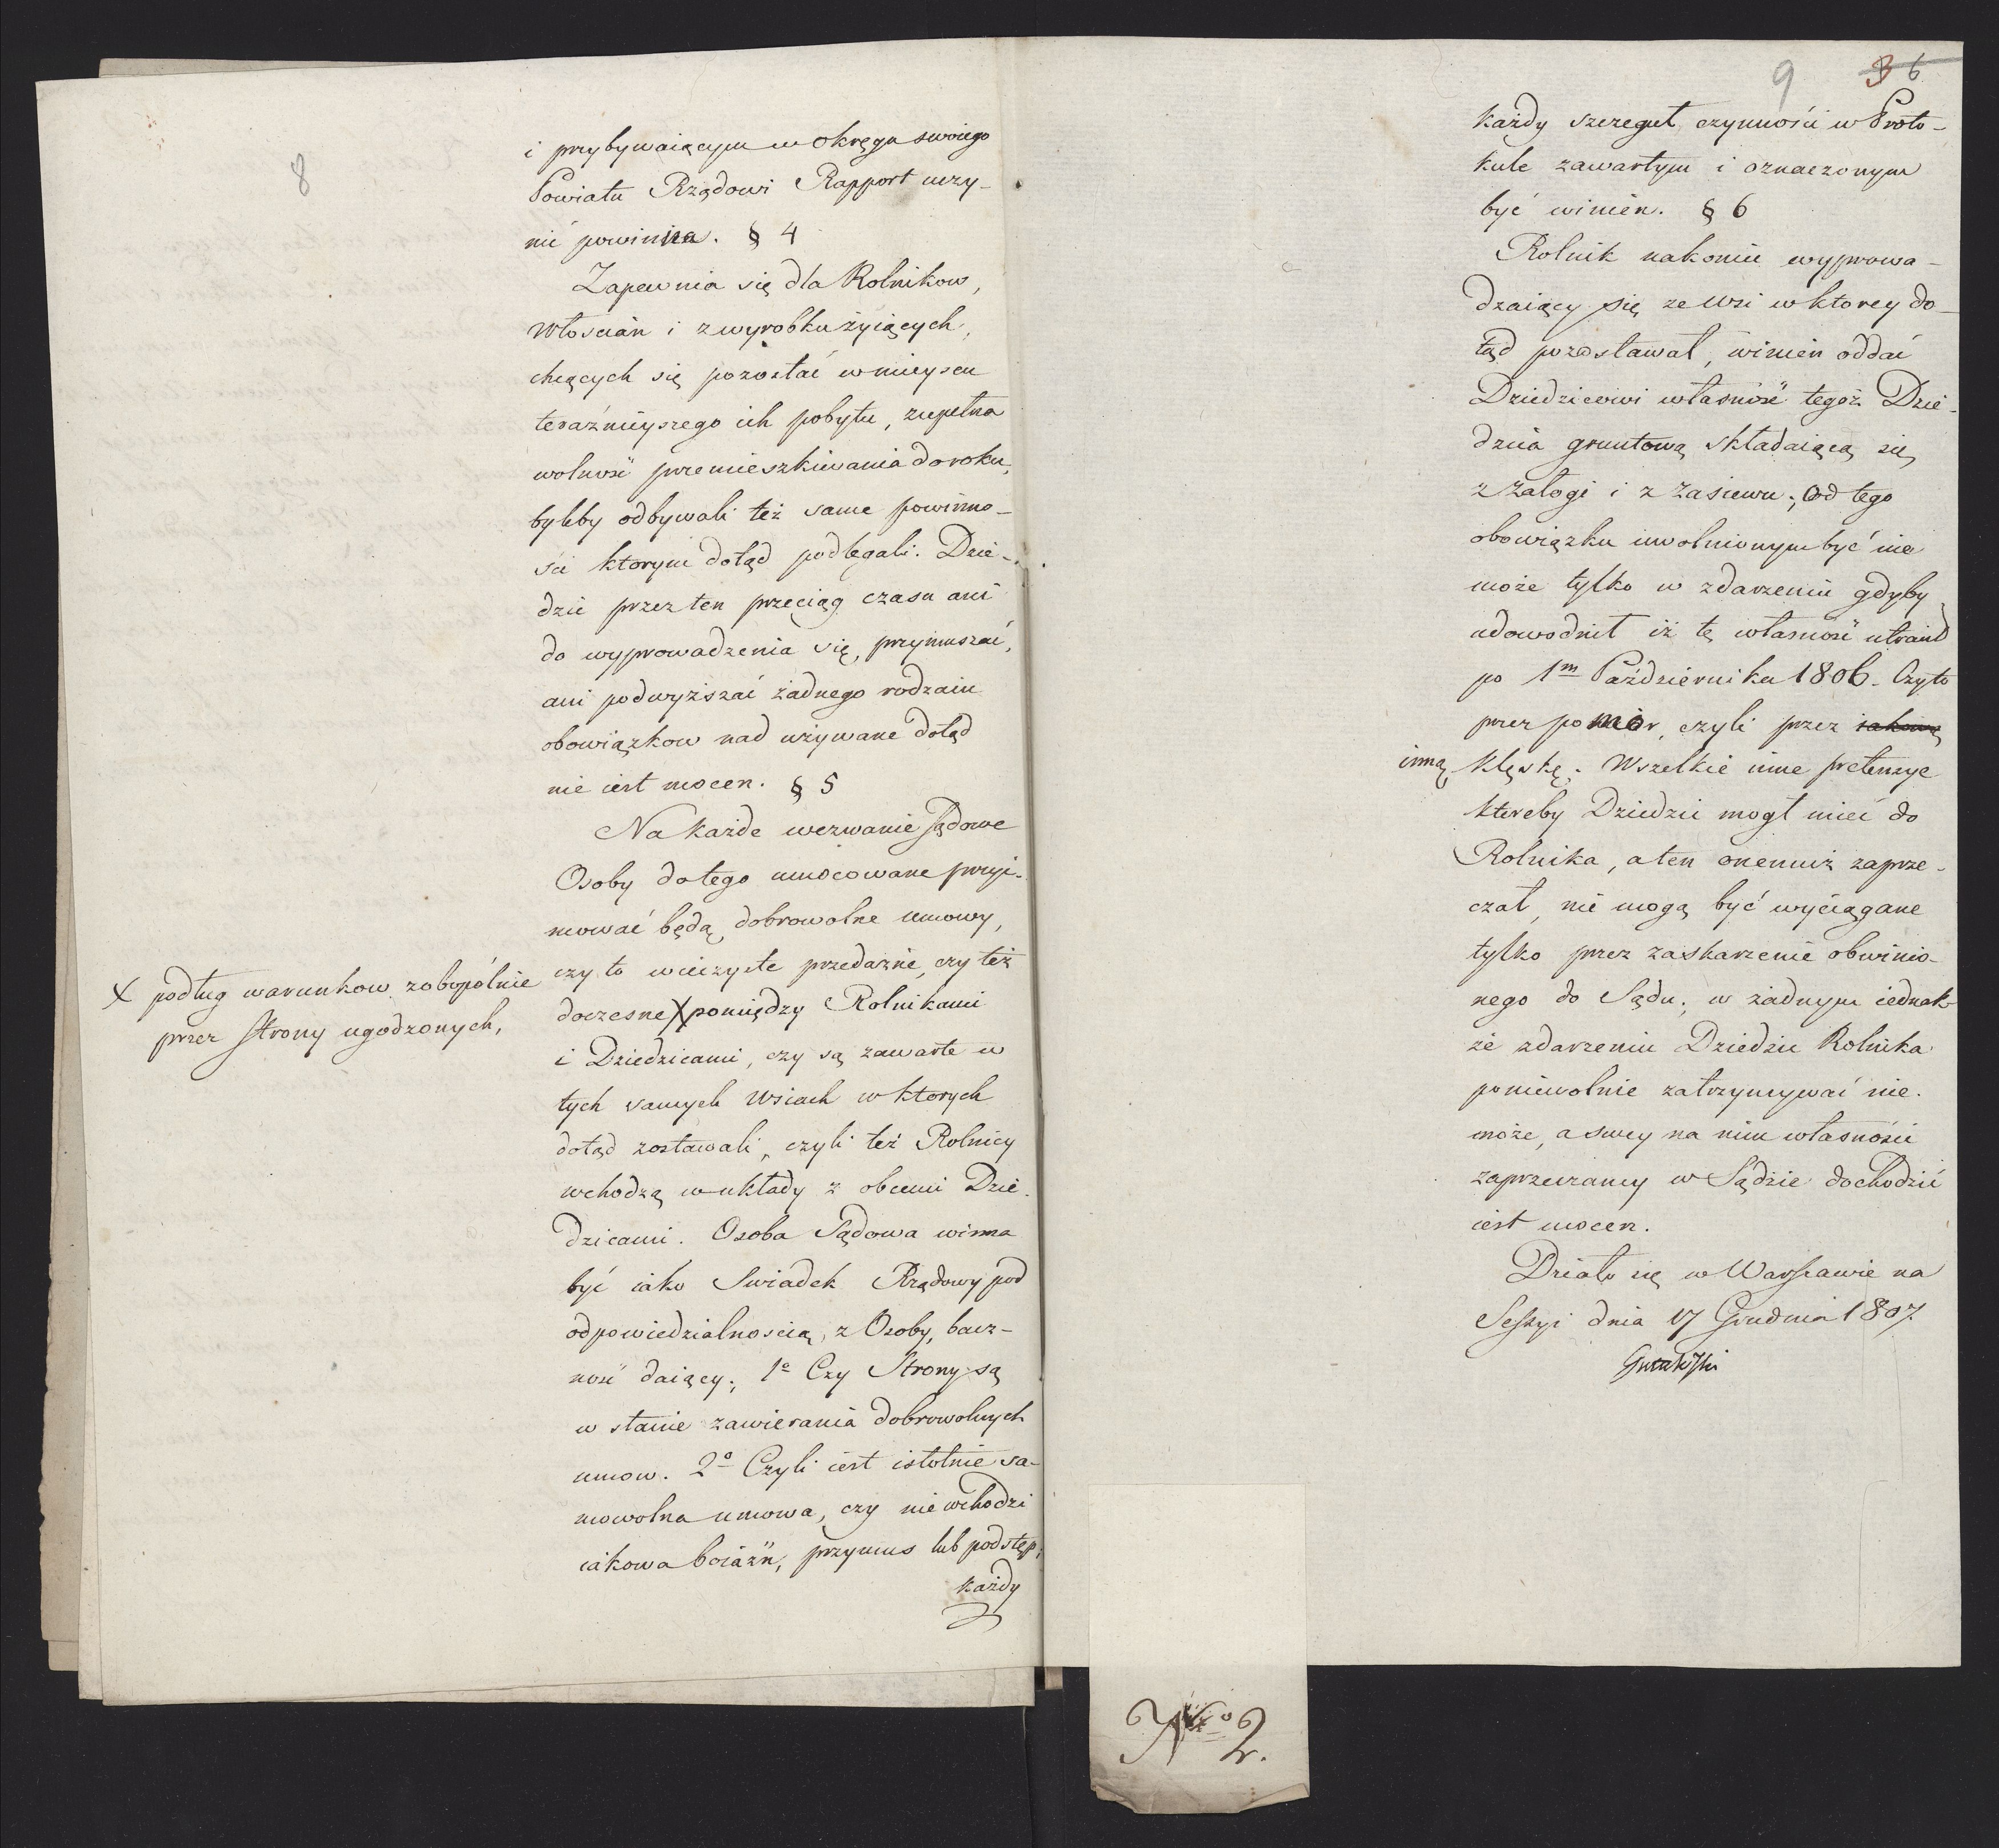 8
i przybywaiącym w okręgu swoiego
Powiatu Rządowi Rapport uczy-
nić powinna. § 4
Zapewnia się dla Rolnikow,
Włościan i z wyrobku żyiących,
chcących się pozostać w mieyscu
teraźnieyszego ich pobytu, zupełna
wolność przemieszkiwania do roku,
byleby odbywali też same powinno-
ści ktorym dotąd podlegali. Dzie-
dzic przez ten przeciąg czasu ani
do wyprowadzenia się, przymuszać,
ani podwyższać żadnego rodzaiu
obowiązkow nad używane dotąd
nie iest mocen. § 5
Na każde wezwanie sądowe
Osoby do tego umocowane przyi-
mować będą dobrowolne umowy,
czy to wieczyste przedażne, czy też
doczesne X pomiędzy Rolnikami
X podług warunkow zobopólnie
przez strony ugodzonych,
i Dziedzicami, czy są zawarte w
tych samych Wsiach w ktorych
dotąd zostawali, czyli też Rolnicy
wchodzą w układy z obcemi Dzie-
dzicami. Osoba Sądowa winna
być iako Swiadek Rządowy pod
odpowiedzialnoscią, z Osoby, bacz-
ność daiący; 1º Czy Strony są
w stanie zawierania dobrowolnych
umow. 2º Czyli iest istotnie sa-
mowolna umowa, czy nie wchodzi
iakowa boiaźń, przymus lub podstęp;
każdy
9 3 6
każdy szczeguł czynności w Proto-
kule zawartym i oznaczonym
być winien. § 6
Rolnik nakoniec wyprowa-
dzaiący się ze Wsi w ktorey do-
tąd pozostawał, winien oddać
Dziedzicowi własność tegoż Dzie-
dzica gruntową składaiącą się
z załogi i z zasiewu; od tego
obowiązku uwolnionym być nie
może tylko w zdarzeniu gdyby
udowodnił iż tę własność utracił
po 1m Października 1806. Czyto
przez pomór, czyli przez iakową
inną klęskę. Wszelkie inne pretensye
ktoreby Dziedzic mogł mieć do
Rolnika, a ten onemuż zaprze-
czał, nie mogą być wyciągane
tylko przez zaskarzenie obwinio-
nego do Sądu; w żadnym iednak-
że zdarzeniu Dziedzic Rolnika
poniewolnie zatrzymywać nie
może, a swey na nim własności
zaprzeczaney w Sądzie dochodzić
iest mocen.
Działo się w Warszawie na
Sessyi dnia 17 Grudnia 1807.
Nro 2.